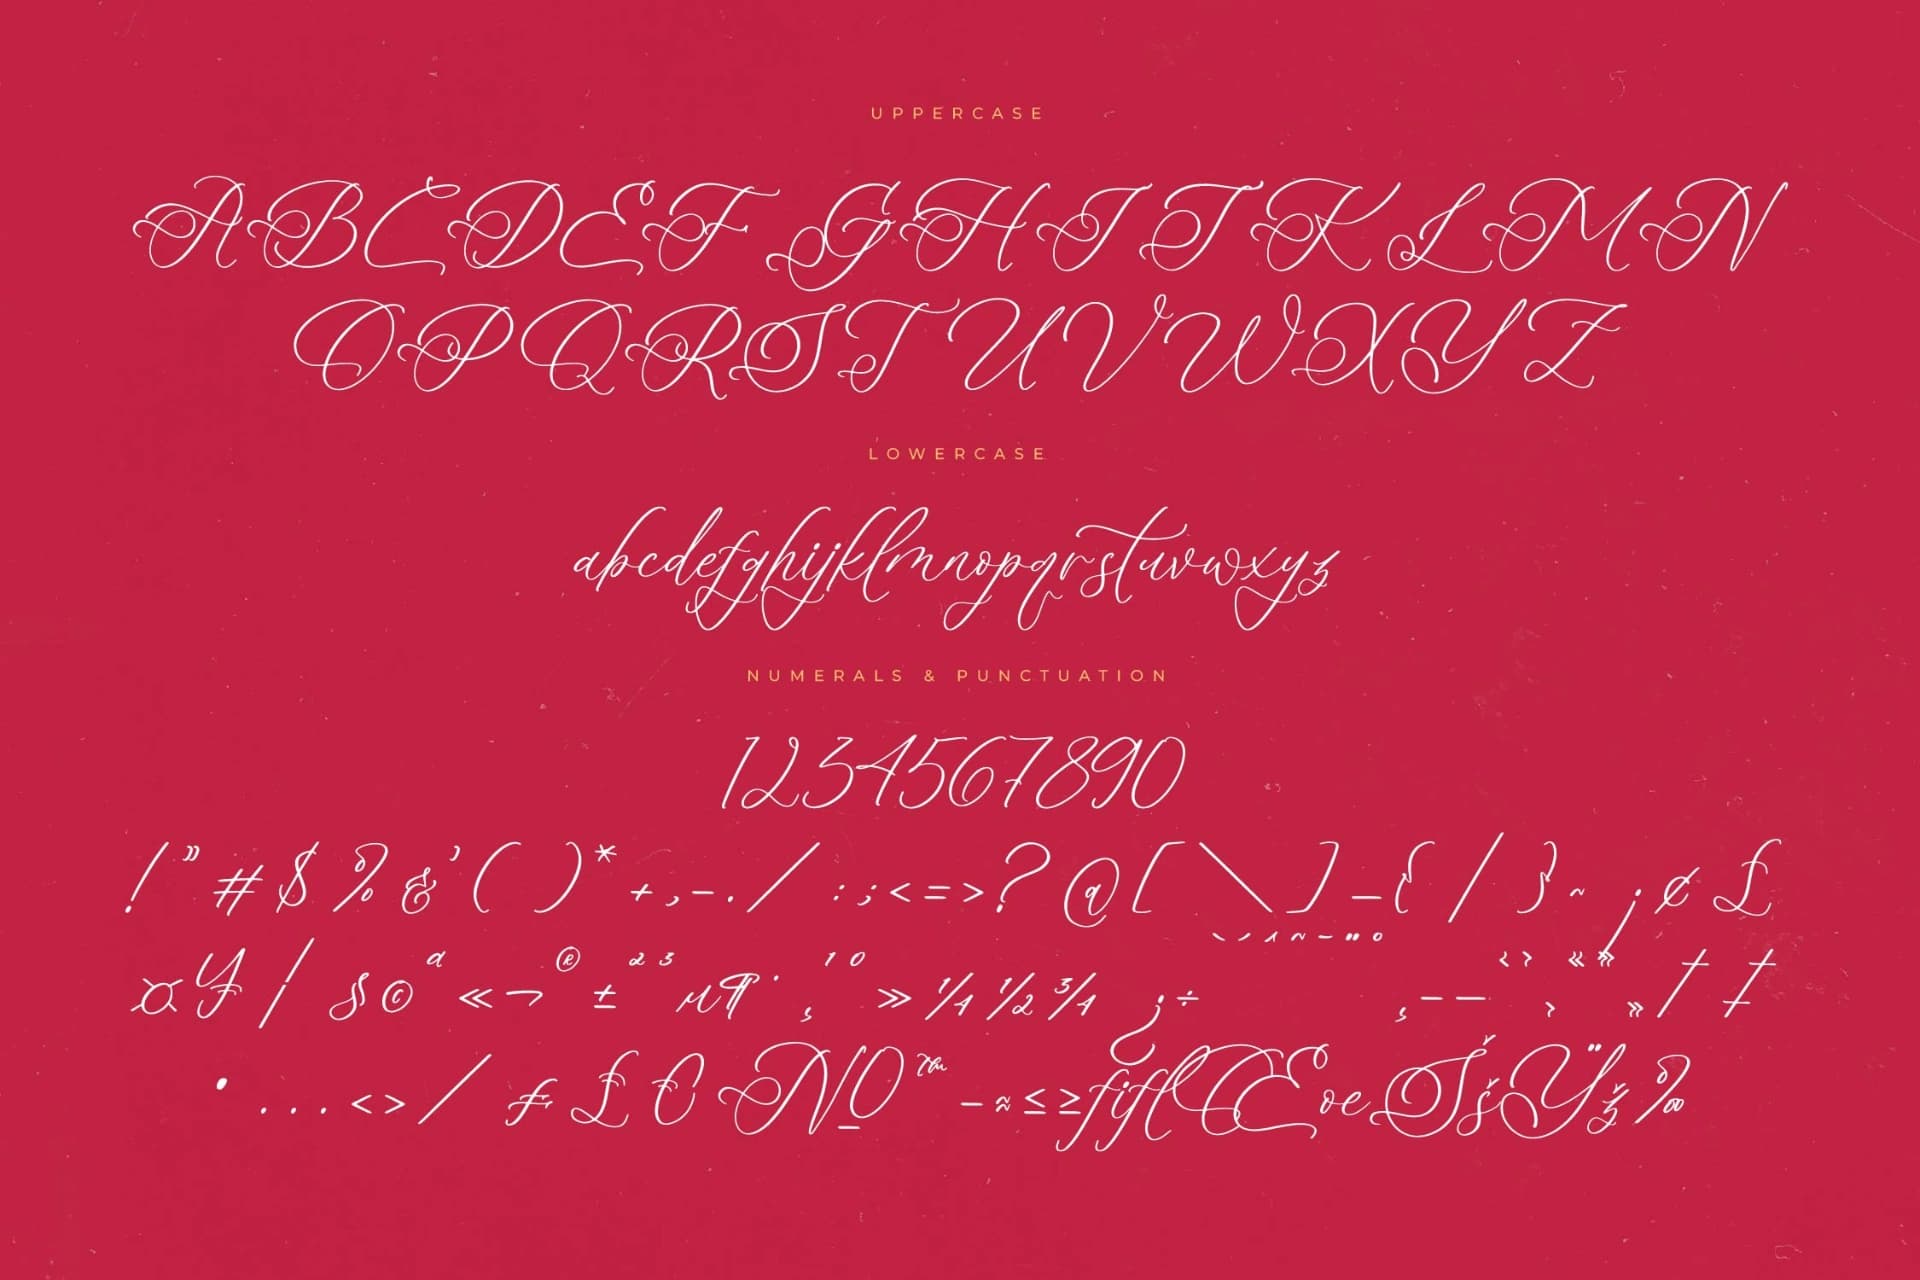 UPPERCASE
ABCDEFGHIJKLMN
OPQRSTUVWXYZ
LOWERCASE
abcdefghijklmnopqrstuvwxyz
NUMERALS & PUNCTUATION
1234567890
! " # $ % & ' ( ) * + , - . / : ; < = > ? @ [ \ ] _ { / } ~ ¡ ¢ £
¤ ¥ / § © ª « ¬ ® ± ² ³ µ ¶ · ¸ ¹ º » ¼ ½ ¾ ¿ ÷ ‚ – — † ‡
• ... < > / ₣ £ € № ™ − ≈ ≤ ≥ fi fl Œ œ Š š Ÿ ž ‰